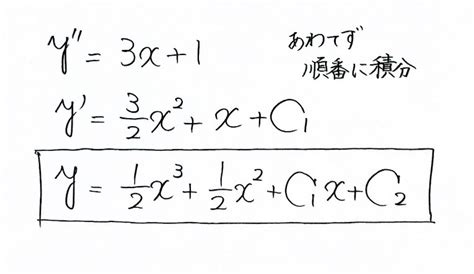 y'' = 3x + 1
あわてず
順番に積分
y' = \frac{3}{2}x^2 + x + C_1
y = \frac{1}{2}x^3 + \frac{1}{2}x^2 + C_1x + C_2